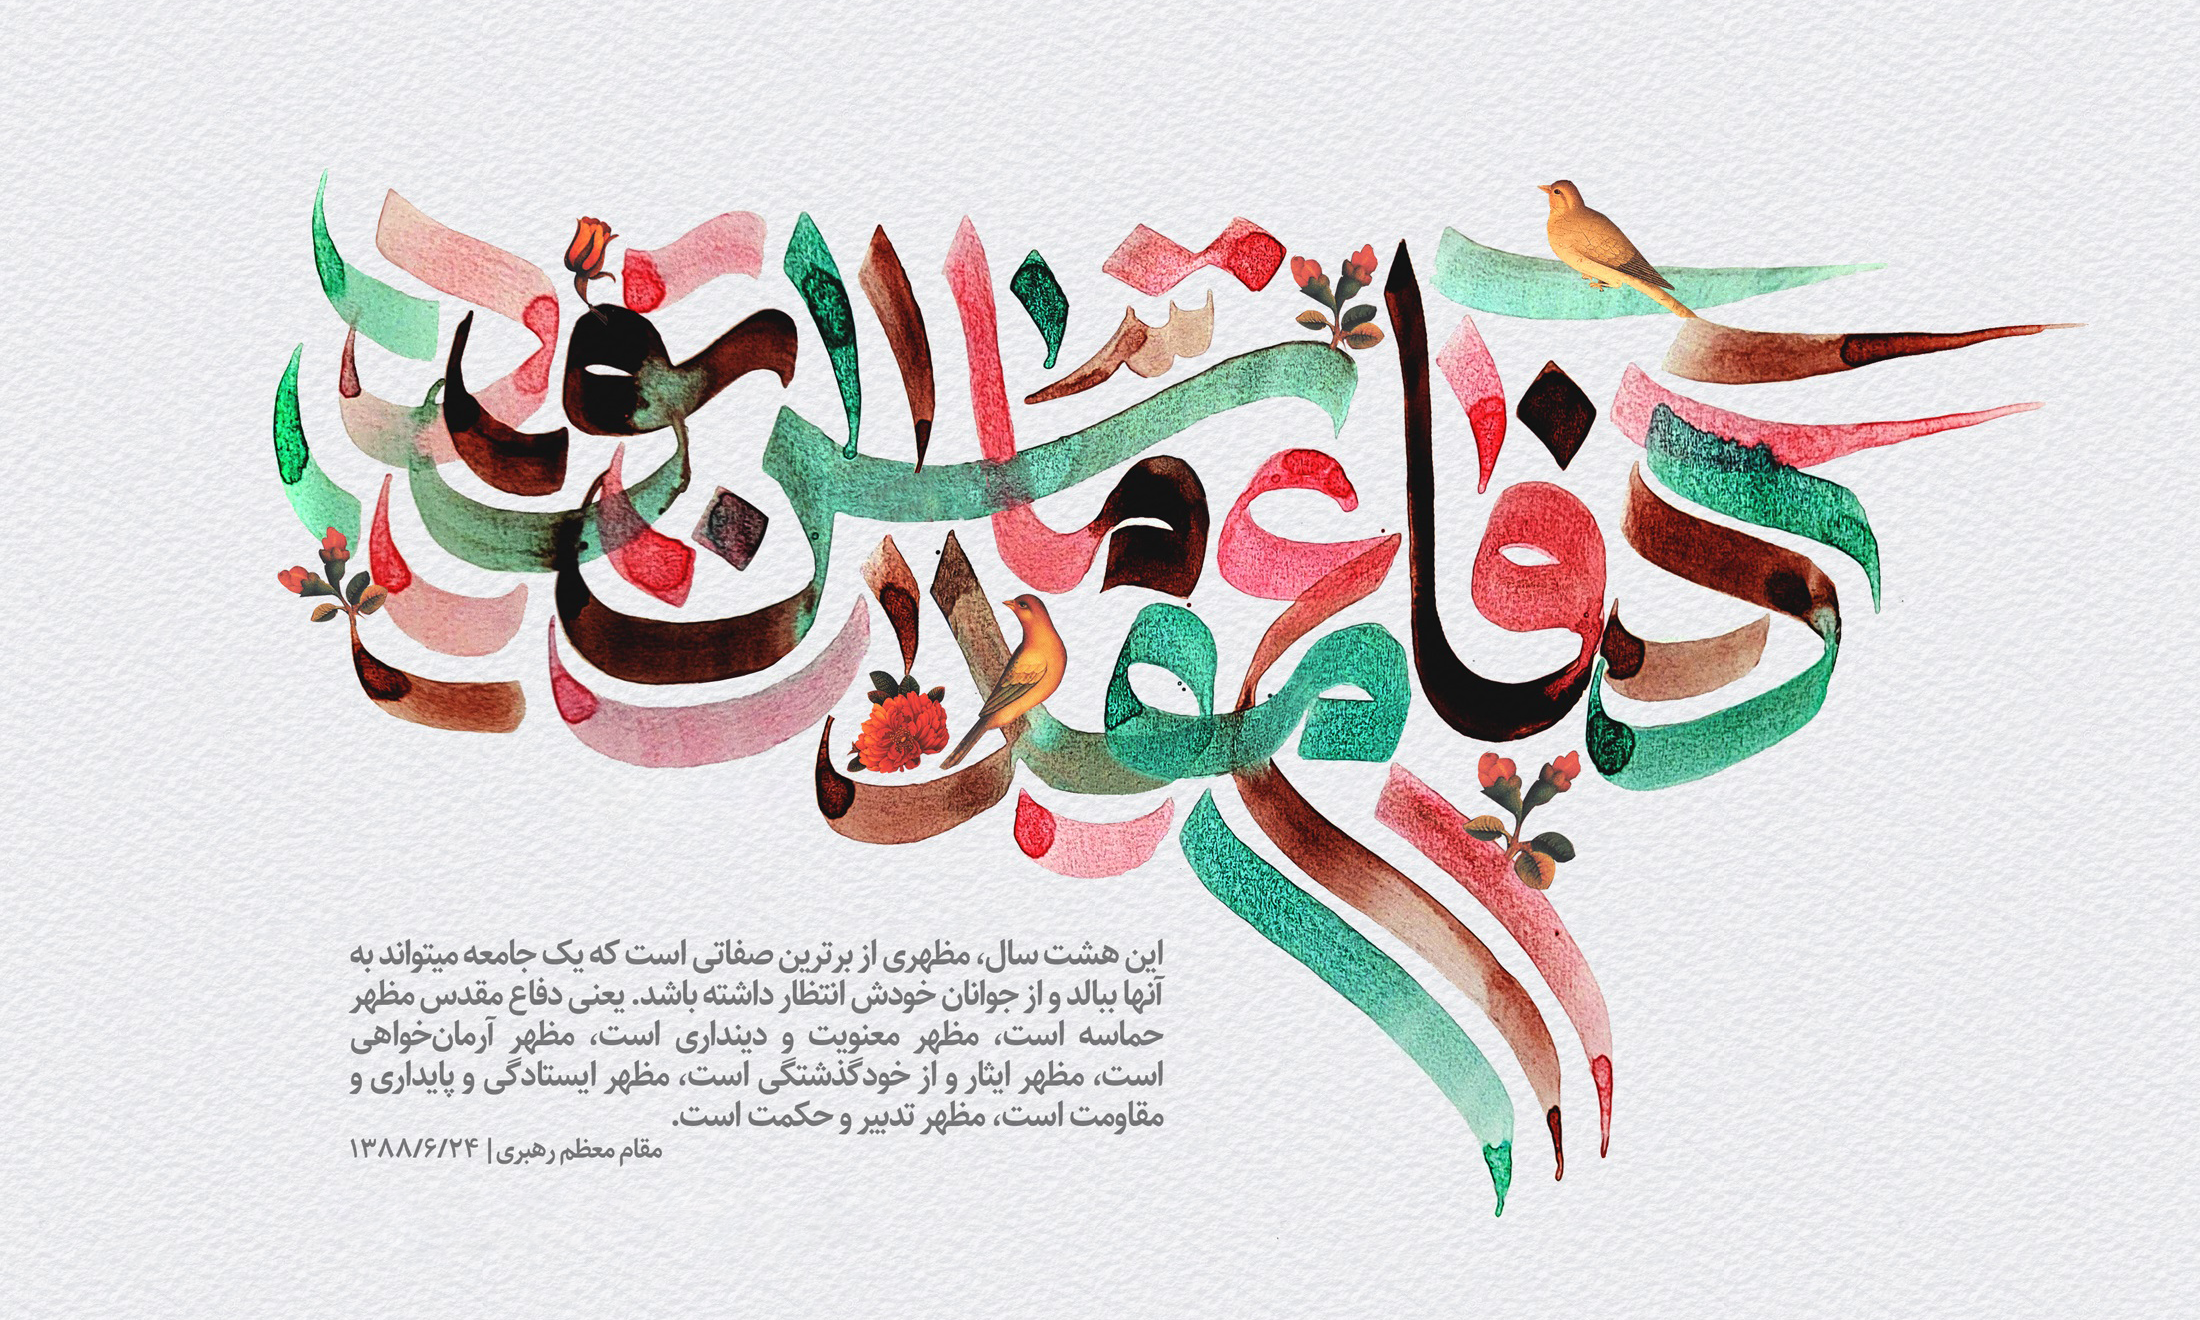 دفاع مقدس
این هشت سال، مظهری از برترین صفاتی است که یک جامعه میتواند به
آنها ببالد و از جوانان خودش انتظار داشته باشد. یعنی دفاع مقدس مظهر
حماسه است، مظهر معنویت و دینداری است، مظهر آرمان‌خواهی
است، مظهر ایثار و از خودگذشتگی است، مظهر ایستادگی و پایداری و
مقاومت است، مظهر تدبیر و حکمت است.
مقام معظم رهبری | ۱۳۸۸/۶/۲۴